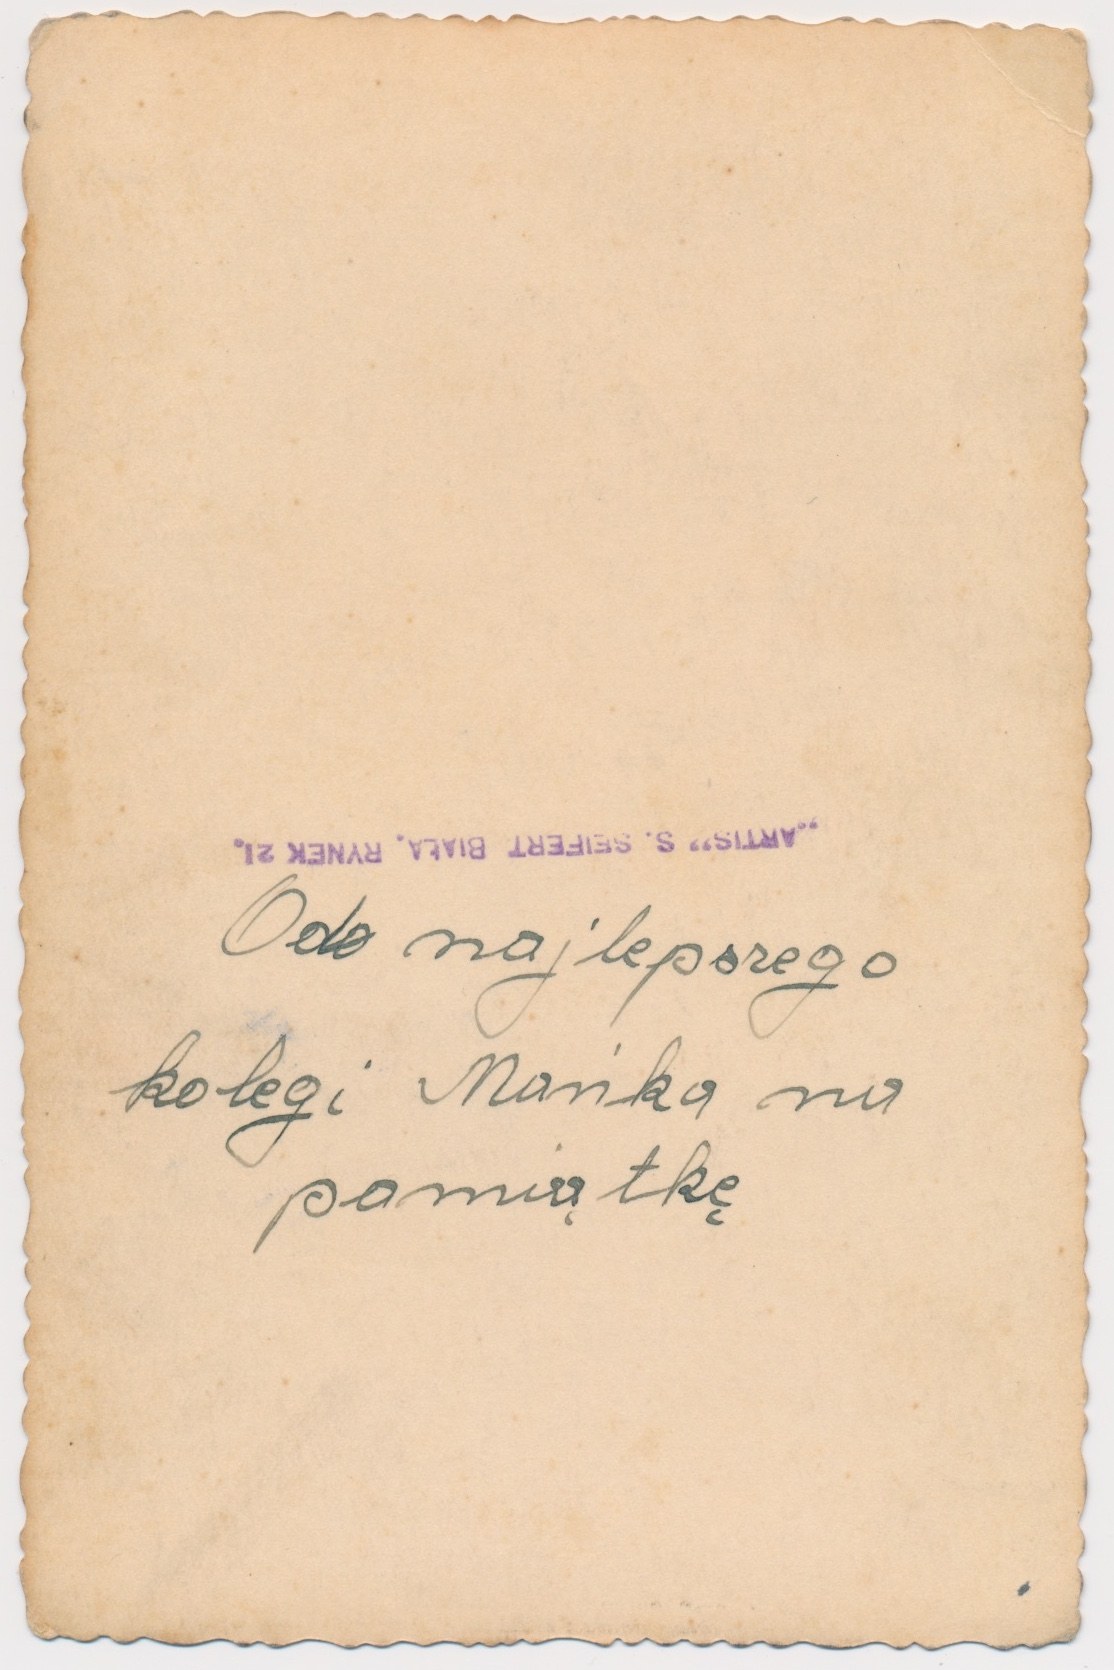 „ARTIS” S. SEIFERT BIAŁA, RYNEK 21.
Od najlepszego
kolegi Mańka na
pamiątkę